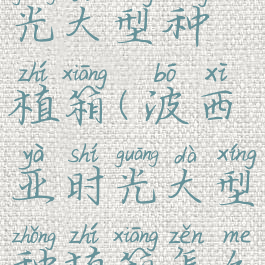 光大型种
zhí xiāng bō xī
植箱(波西
yà shí guāng dà xíng
亚时光大型
zhǒng zhí xiāng zěn me